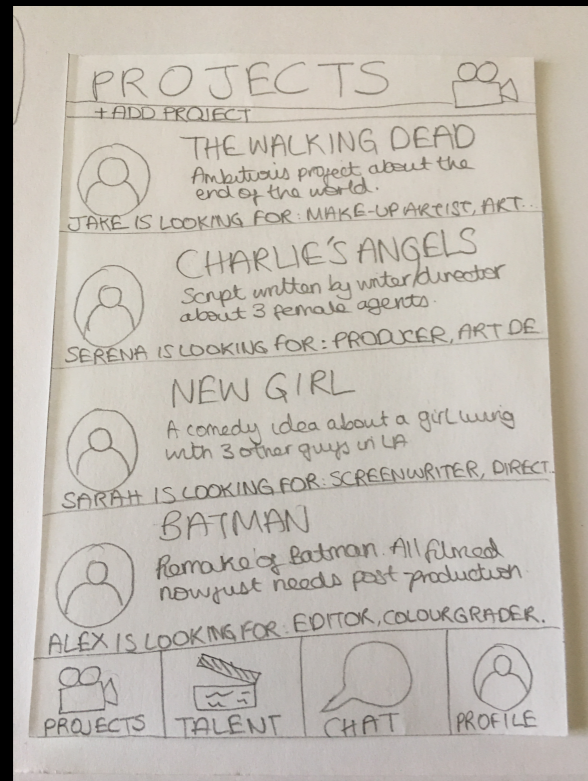 PROJECTS
+ADD PROJECT
THE WALKING DEAD
Ambitious project about the
end of the world.
JAKE IS LOOKING FOR: MAKE-UP ARTIST, ART...
CHARLIE'S ANGELS
Script written by writer/director
about 3 female agents.
SERENA IS LOOKING FOR: PRODUCER, ART DE
NEW GIRL
A comedy idea about a girl living
with 3 other guys in LA
SARAH IS LOOKING FOR: SCREENWRITER, DIRECT...
BATMAN
Remake of Batman. All filmed
now just needs post-production.
ALEX IS LOOKING FOR: EDITOR, COLOURGRADER.
PROJECTS TALENT CHAT PROFILE